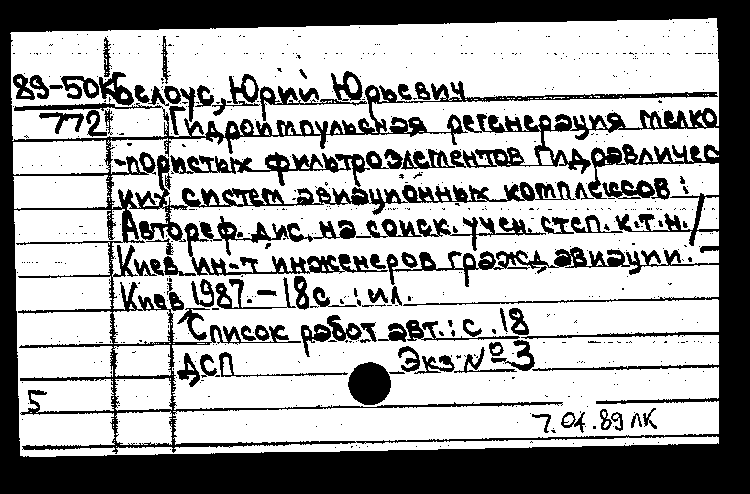 89-50К Белоус, Юрий Юрьевич
772 Гидроимпульсная регенерация мелко
-пористых фильтроэлементов гидравличес
ких систем авиационных комплексов :
Автореф. дис. на соиск. учен. степ. к.т.н. /
Киев. ин-т инженеров гражд. авиации. -
Киев 1987. - 18 с. : ил.
Список работ авт.: с. 18
ДСП Экз № 3
5
7.04.89 ЛК